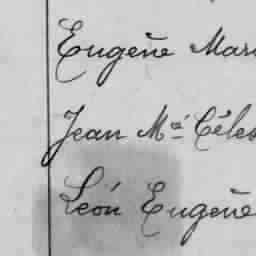 Eugène Mari
Jean Mie Céles
Léon Eugène